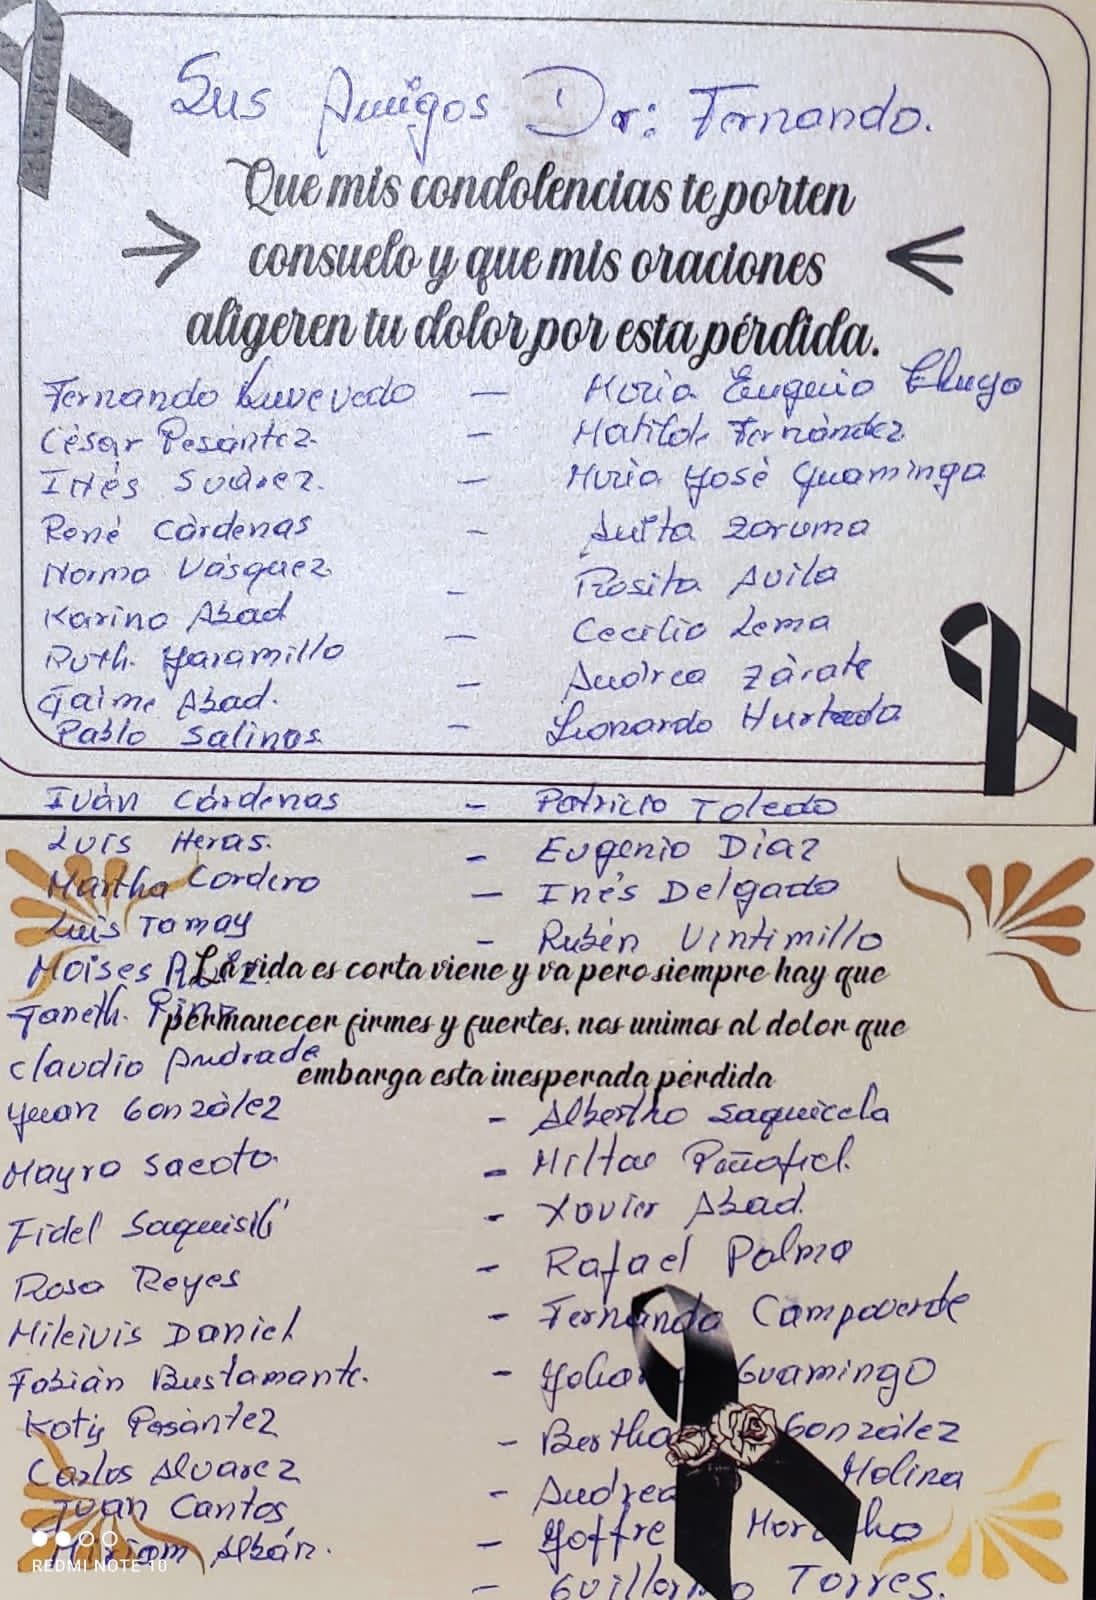 Sus Amigos Dr: Fernando.
Que mis condolencias te porten
consuelo y que mis oraciones
aligeren tu dolor por esta pérdida.
Fernando - María Eugenia Chugo
César Pesántez - Matilde Fernández
Inés Suárez. - María José Guaminga
René Cárdenas - Anita Zaruma
Norma Vásquez - Rosita Avila
Karina Abad - Cecilia Lema
Ruth Yaramillo - Andrea Zárate
Jaime Abad. - Leonardo Hurtado
Pablo Salinas
Iván Cárdenas - Patricio Toledo
Luis Heras. - Eugenio Díaz
Martha Cordero - Inés Delgado
Luis Tamay - Rubén Vintimilla
Moises
La vida es corta viene y va pero siempre hay que
Janeth.
permanecer firmes y fuertes. nos unimos al dolor que
Claudio Andrade
embarga esta inesperada pérdida
Yuan González - Albertho Saquicela
Mayra Sacoto - Milton Peñafiel.
Fidel Saquisilí - Xavier Abad.
Rosa Reyes - Rafael Palma
Mileivis Daniel - Fernando Campoverde
Fabián Bustamante. - Guamingo
Katy Pesántez - Bertha González
Carlos Alvarez - Andrea Molina
Juan Cantos - Yoffre
Miriam Albán. - Guillermo Torres.
REDMI NOTE 10